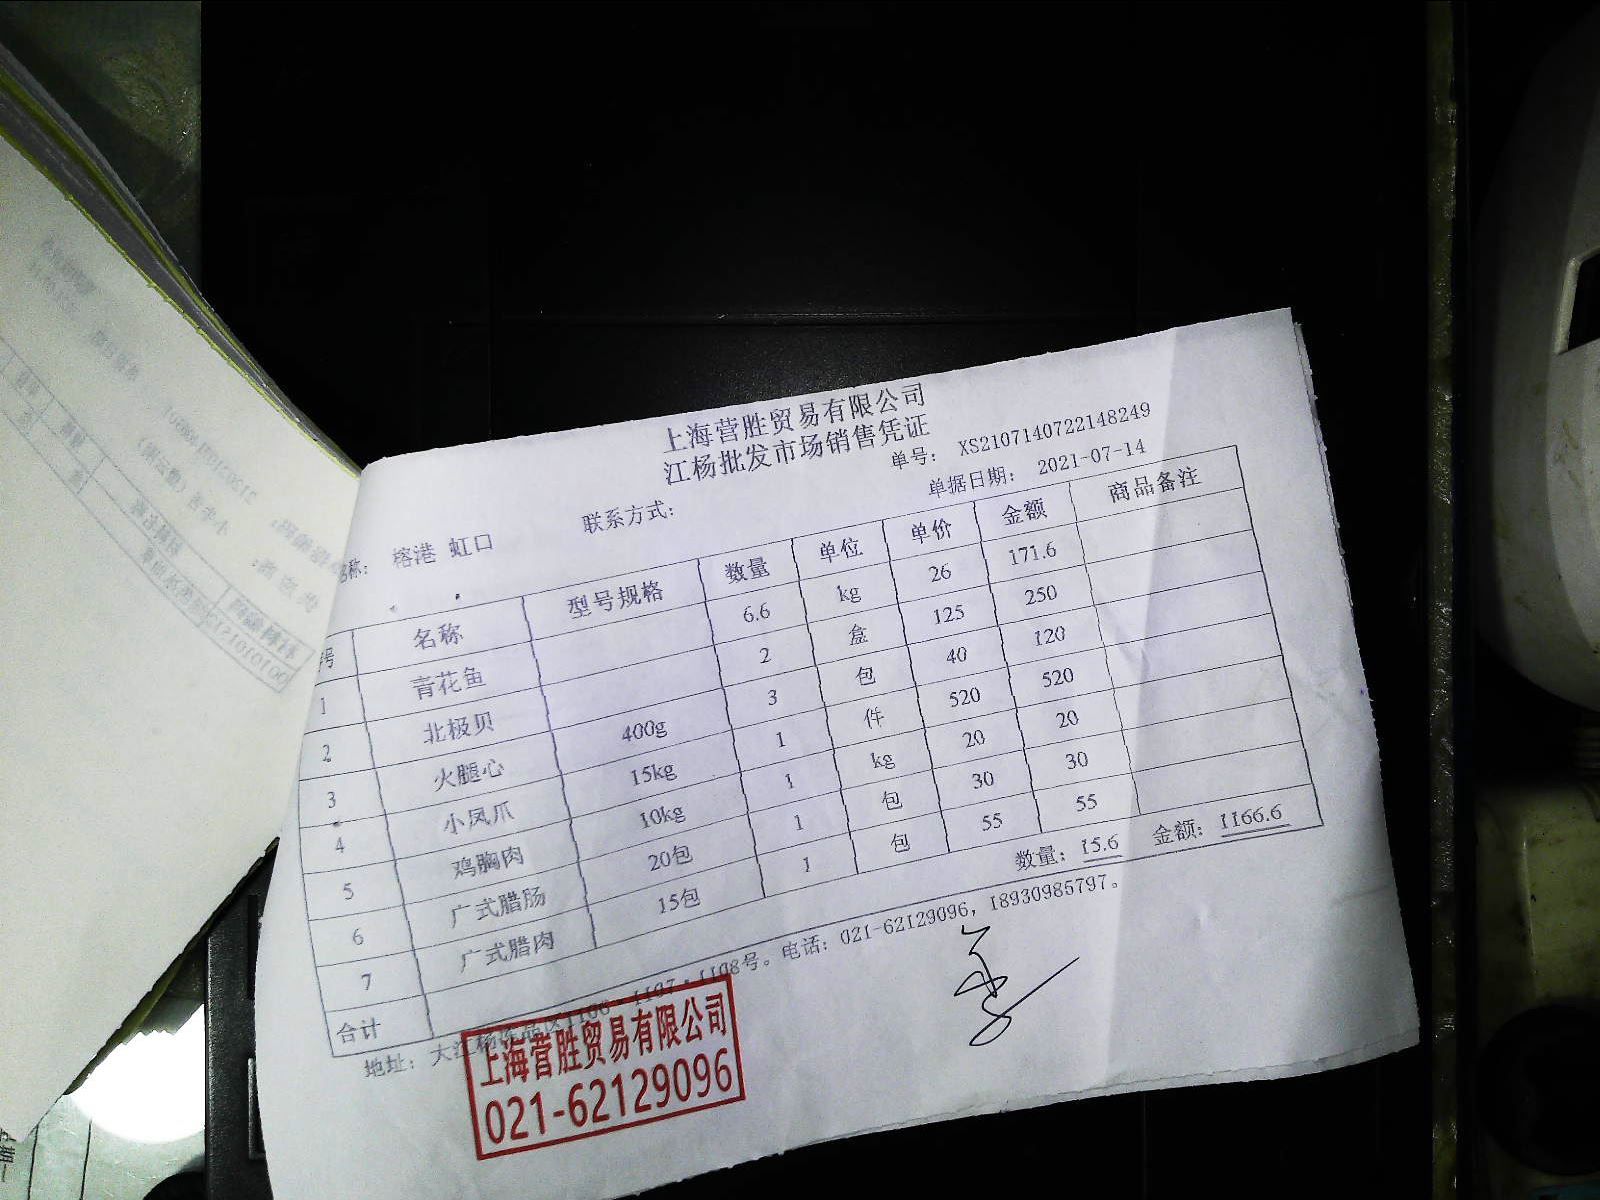 上海营胜贸易有限公司
江杨批发市场销售凭证
单号: XS2107140722148249
名称: 榕港 虹口 联系方式: 单据日期: 2021-07-14
序号 名称 型号规格 数量 单位 单价 金额 商品备注
1 青花鱼 6.6 kg 26 171.6
2 北极贝 2 盒 125 250
3 火腿心 400g 3 包 40 120
4 小凤爪 15kg 1 件 520 520
5 鸡胸肉 10kg 1 kg 20 20
6 广式腊肠 20包 1 包 30 30
7 广式腊肉 15包 1 包 55 55
合计 数量: 15.6 金额: 1166.6
地址: 大江杨冻品区1106-1107-1108号。电话: 021-62129096, 18930985797。
上海营胜贸易有限公司
021-62129096